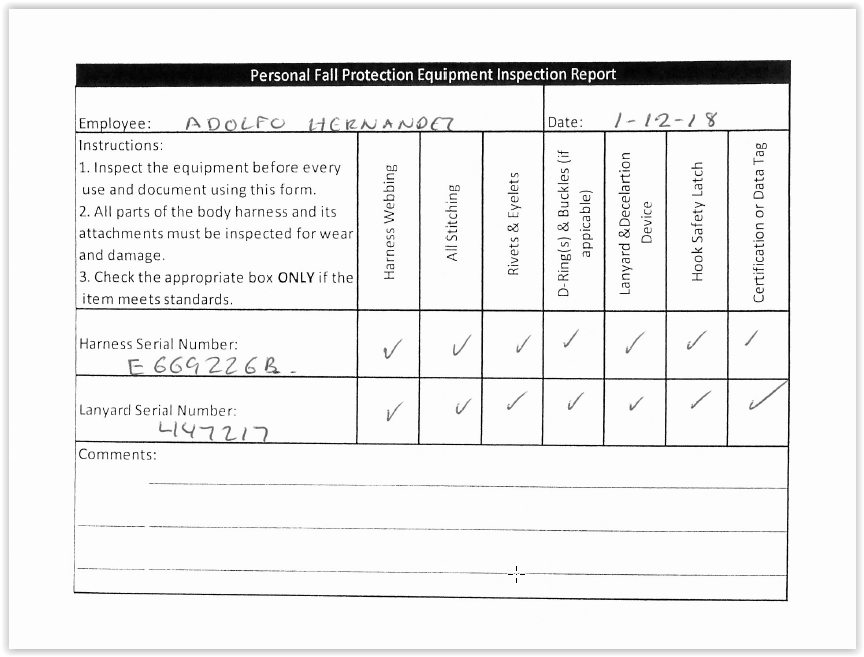 Personal Fall Protection Equipment Inspection Report
Employee: ADOLFO HERNANDEZ
Date: 1-12-18
Instructions:
1. Inspect the equipment before every
use and document using this form.
2. All parts of the body harness and its
attachments must be inspected for wear
and damage.
3. Check the appropriate box ONLY if the
item meets standards.
Harness Webbing
All Stitching
Rivets & Eyelets
D-Ring(s) & Buckles (if
appicable)
Lanyard &Decelartion
Device
Hook Safety Latch
Certification or Data Tag
Harness Serial Number:
E669226B-
✓ ✓ ✓ ✓ ✓ ✓ ✓
Lanyard Serial Number:
447217
✓ ✓ ✓ ✓ ✓ ✓ ✓
Comments: